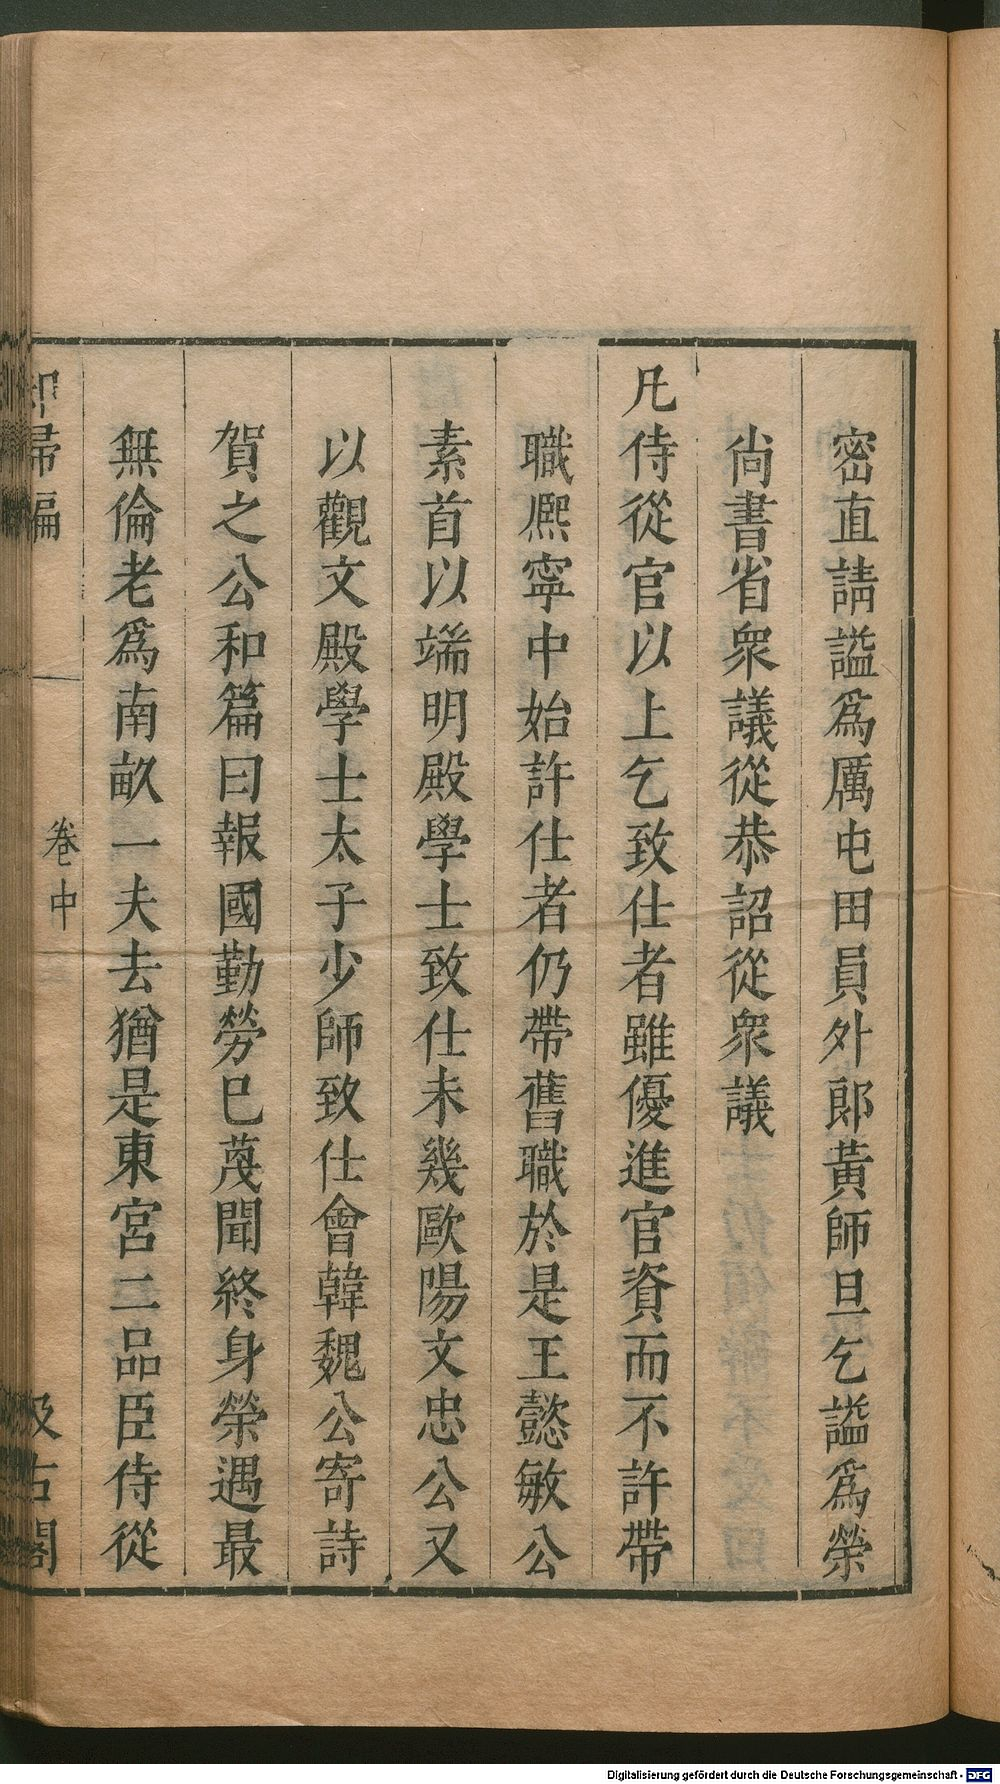 密直請謚爲厲屯田員外郎黃師旦乞謚爲榮
尚書省衆議從恭詔從衆議
凡侍從官以上乞致仕者雖優進官資而不許帶
職熈寜中始許仕者仍帶舊職於是王懿敏公
素首以端明殿學士致仕未幾歐陽文忠公又
以觀文殿學士太子少師致仕會韓魏公寄詩
賀之公和篇曰報國勤勞巳蔑聞終身榮遇最
無倫老爲南畝一夫去猶是東宮二品臣侍從
却掃編
卷中
汲古閣
Digitalisierung gefördert durch die Deutsche Forschungsgemeinschaft - DFG